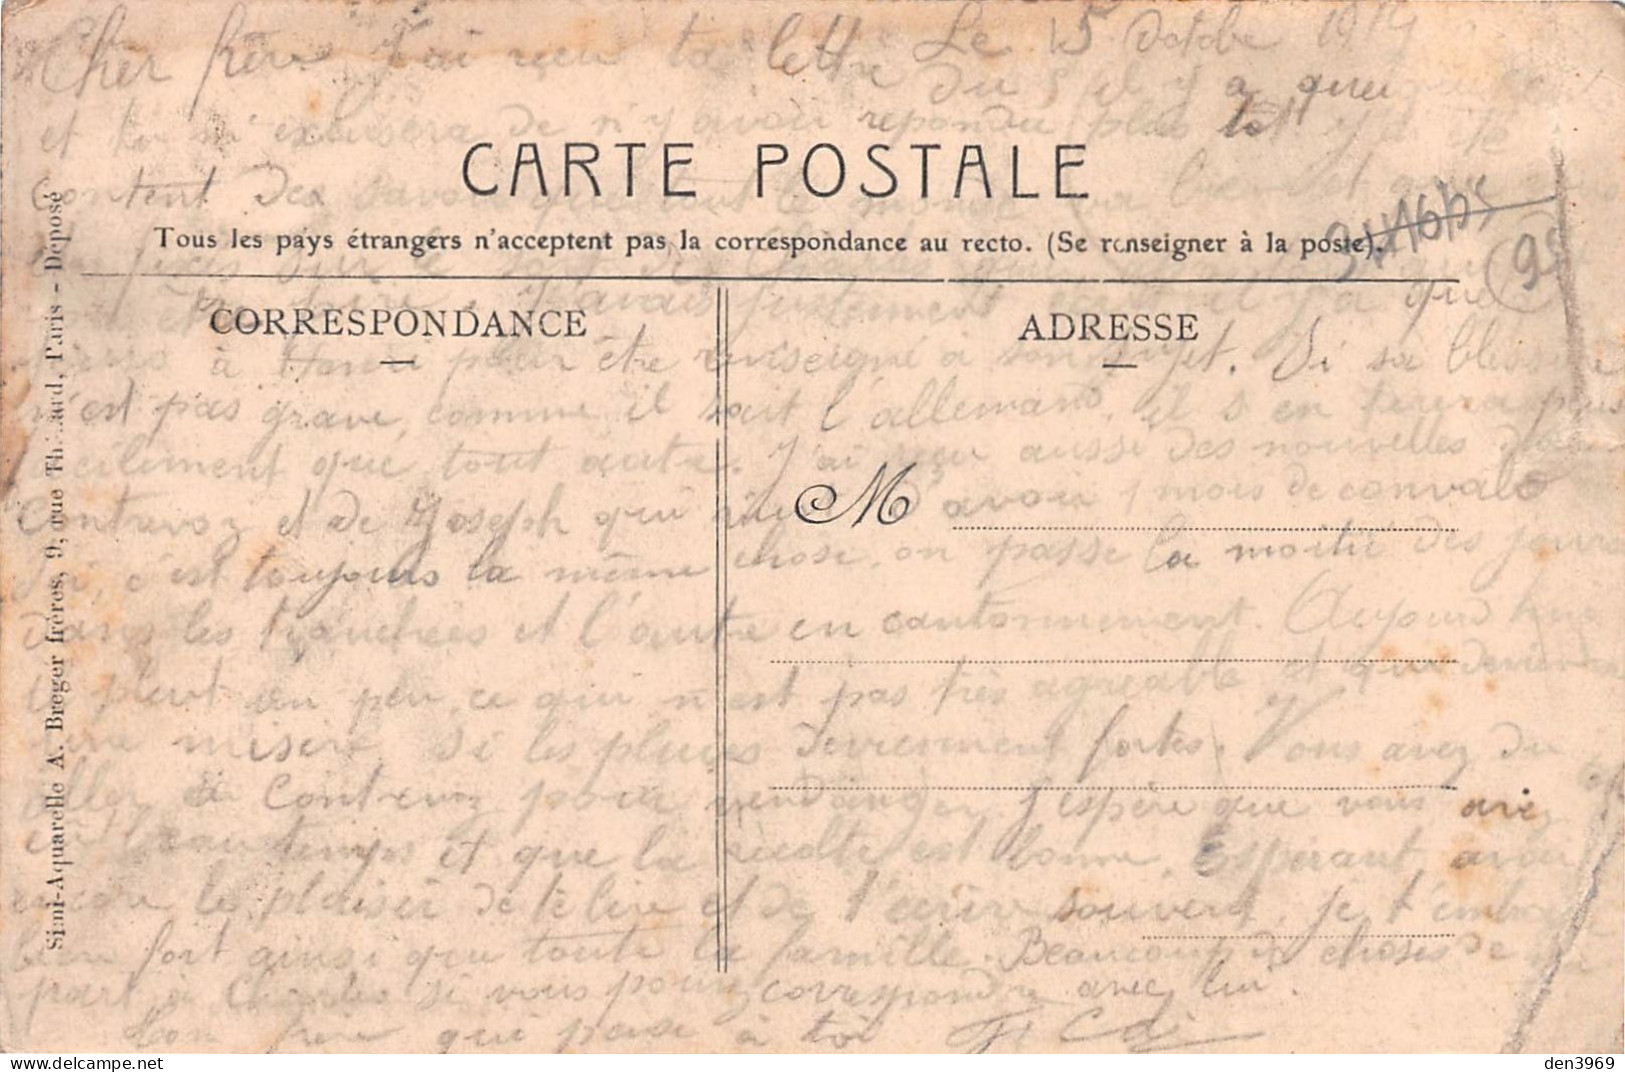 Le 15 Octobre 1914
Cher frère J'ai reçu ta lettre du 5 il y a
et tu m'excusera de n'y avoir repondu plus tot
CARTE POSTALE
content des savoir que tout le monde va bien et
Tous les pays étrangers n'acceptent pas la correspondance au recto. (Se renseigner à la poste).
95
J'avais justement écrit il y a
CORRESPONDANCE
ADRESSE
à pour être renseigné a son sujet. Si sa blessure
n'est pas grave, comme il sait l'allemand, il s'en tirera plus
facilement que tout autre. J'ai reçu aussi des nouvelles de
M
Contravoz et de Joseph qui d'avoir 1 mois de convalo
Ici, c'est toujours la même chose, on passe la moitié des jours
dans les tranchées et l'autre en cantonnement. Aujourd hui
il pleut un peu, ce qui n'est pas très agréable et qui deviendra
une misere si les pluies deviennent fortes. Vous avez du
aller à Contravoz pour vendanger, j'espère que vous avez
eu beau temps et que la recolte est bonne. Espérant avoir
encore le plaisir de te lire et de t'ecrire souvent, je t'embrasse
bien fort ainsi que toute la famille. Beaucoup de choses de ma
part à Charles si vous pouvez correspondre avec lui.
Ton frère qui pense à toi
Simi-Aquarelle A. Breger frères, 9, rue Thénard, Paris - Déposé
den3969